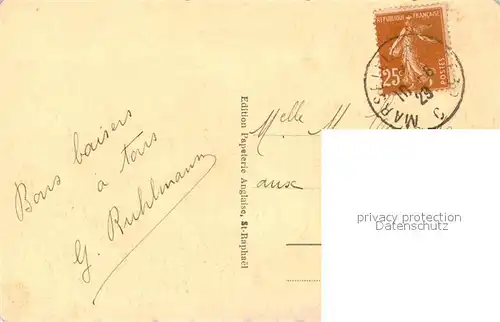 REPUBLIQUE FRANÇAISE
25c POSTES
MARSEILLE
29
Bons baisers
à tous
G. Ruhlmann
Edition Papeterie Anglaise, St-Raphaël
Melle M
aux
privacy protection
DAMALS.COM